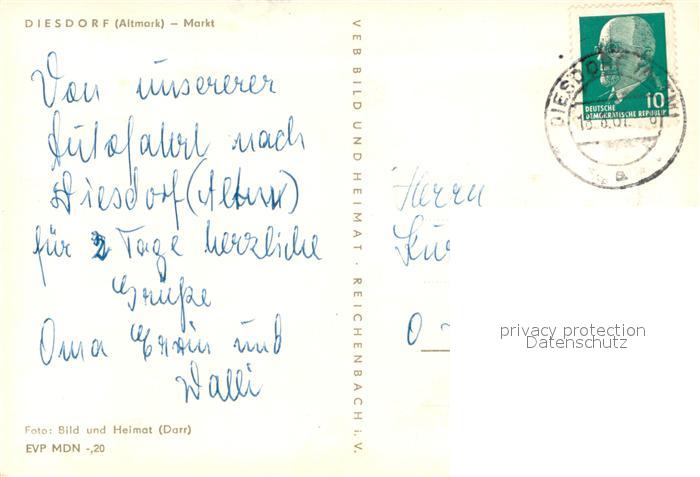 DIESDORF (Altmark) – Markt
Von unsererer
Autofahrt nach
Diesdorf (Altm)
für 2 Tage herzliche
Grüße
Oma Erwin und
Walli
Foto: Bild und Heimat (Darr)
EVP MDN -,20
VEB BILD UND HEIMAT · REICHENBACH i. V.
10
DEUTSCHE
DEMOKRATISCHE REPUBLIK
DIESDORF
a
Herrn
O
privacy protection
Datenschutz